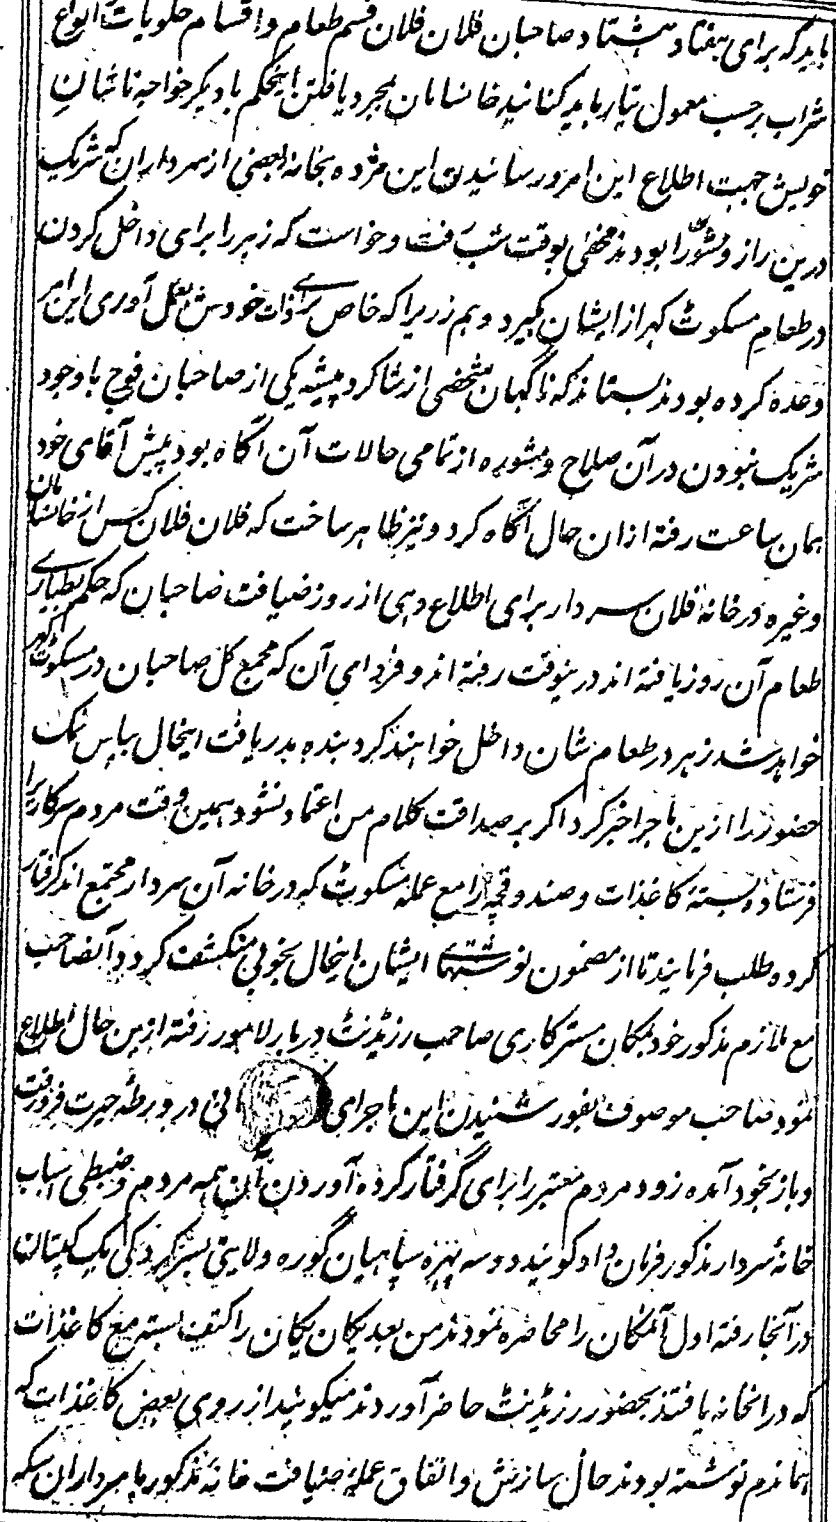 باید که برای هفتاد هشتاد صاحبان فلان فلان قسم طعام و اقسام حلویات انواع
شراب برحسب معمول تیار باید کنانید خانسامان بمجرد یافتن اینحکم با دیگر خواجه تاشان
خویش جهت اطلاع این امر و رسانیدن این مژده بخانه بعضی از سرداران که شریک
درین راز و مشورا بودند مخفی بوقت شب رفت و خواست که زهر را برای داخل کردن
در طعام مسکوٹ گهر از ایشان بگیرد و هم زریرا که خاص برای ذات خودش بعمل آوری این امر
وعده کرده بودند بستاند که ناگهان شخصی از شاگرد پیشه یکی از صاحبان فوج باوجود
شریک نبودن در آن صلاح و مشوره از تمامی حالات آن آگاه بود پیش آقای خود
همان ساعت رفته ازان حال آگاه کرد و نیز ظاهر ساخت که فلان فلان کس از خانسامان
وغیره در خانه فلان سردار برای اطلاع دهی از روز ضیافت صاحبان که حکم بطیاری
طعام آن روز یافته اند درینوقت رفته اند و فردای آن که مجمع کل صاحبان در مسکوٹ گهر
خواهد شد زهر در طعام شان داخل خواهند کرد بنده بدریافت اینحال بپاس نمک
حضور را ازین ماجرا خبر کرد اگر بر صداقت کلام من اعتماد نشود همین وقت مردم سرکار را
فرستاده بسته کاغذات و صندوقچه را مع عمله مسکوٹ که در خانه آن سردار مجتمع اند گرفتار
کرده طلب فرمایند تا از مضمون نوشتهای ایشان اینحال بخوبی منکشف گردد آنصاحب
مع ملازم مذکور خود بمکان مسترکاری صاحب رزیڈنٹ دربار لاهور رفته ازین حال اطلاع
نمود صاحب موصوف بفور شنیدن این ماجرای در ورطه حیرت فرو رفت
و باز بخود آمده زود مردم معتبر را برای گرفتار کرده آوردن آن همه مردم و ضبطی اسباب
خانه سردار مذکور فرمان داد گویند دو سه پهره سپاهیان گوره ولایتی بسرکردگی یک کپتان
در آنجا رفته اول آنمکان را محاصره نمودند من بعد یکان یکان را کتف بسته مع کاغذات
که در انخانه یافتند بحضور رزیڈنٹ حاضر آوردند میگویند از روی بعض کاغذات که
انها نوشته بودند حال سازش و اتفاق عمله ضیافت خانه مذکور با سرداران سکه